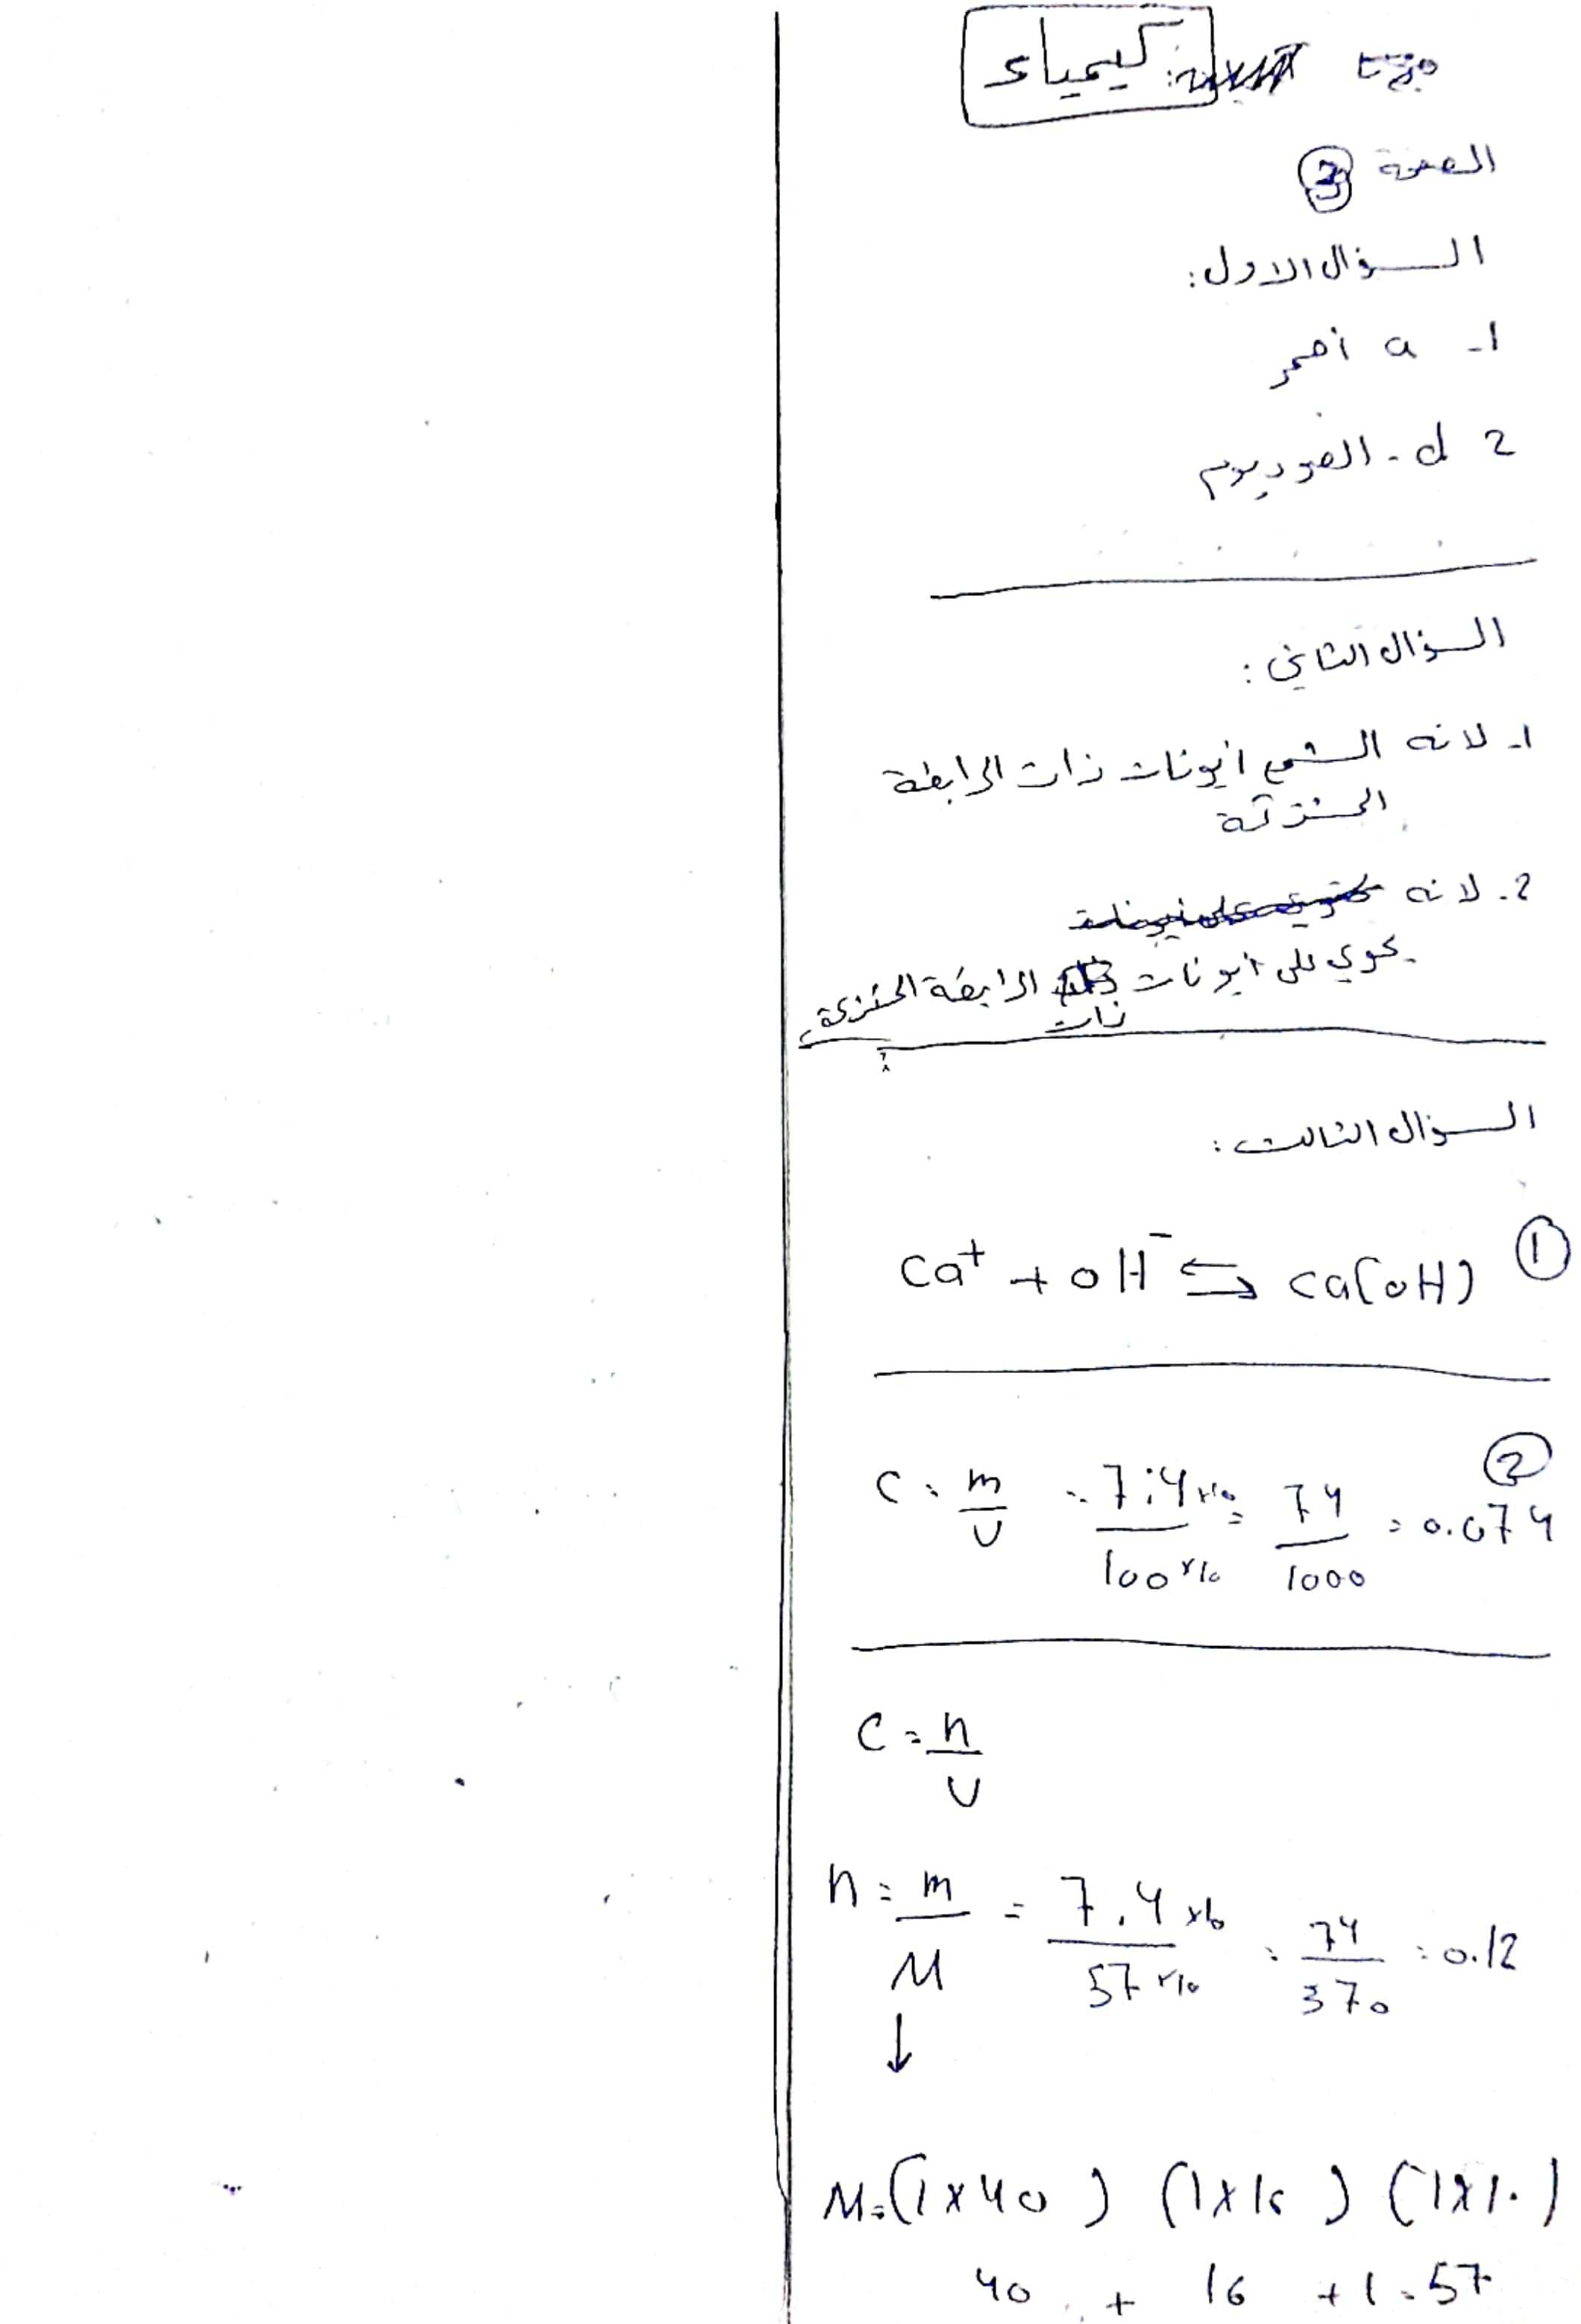 كيمياء
الصفحة 3
السؤال الاول:
1- a أحمر
2 d - الصوديوم
السؤال الثاني:
1- لانه الشمع ايونات ذات الرابطة
المشتركة
2- لانه
يحوي على ايونات ذات الرابطة المشتركة
السؤال الثالث:
① Ca⁺ + OH⁻ ⇆ Ca(OH)
②
C = m/V = 7.4×10/100×10 = 74/1000 = 0.074
C = n/V
n = m/M = 7.4×10/57×10 = 74/570 = 0.12
↓
M = (1×40) (1×16) (1×1)
40 + 16 + 1 = 57